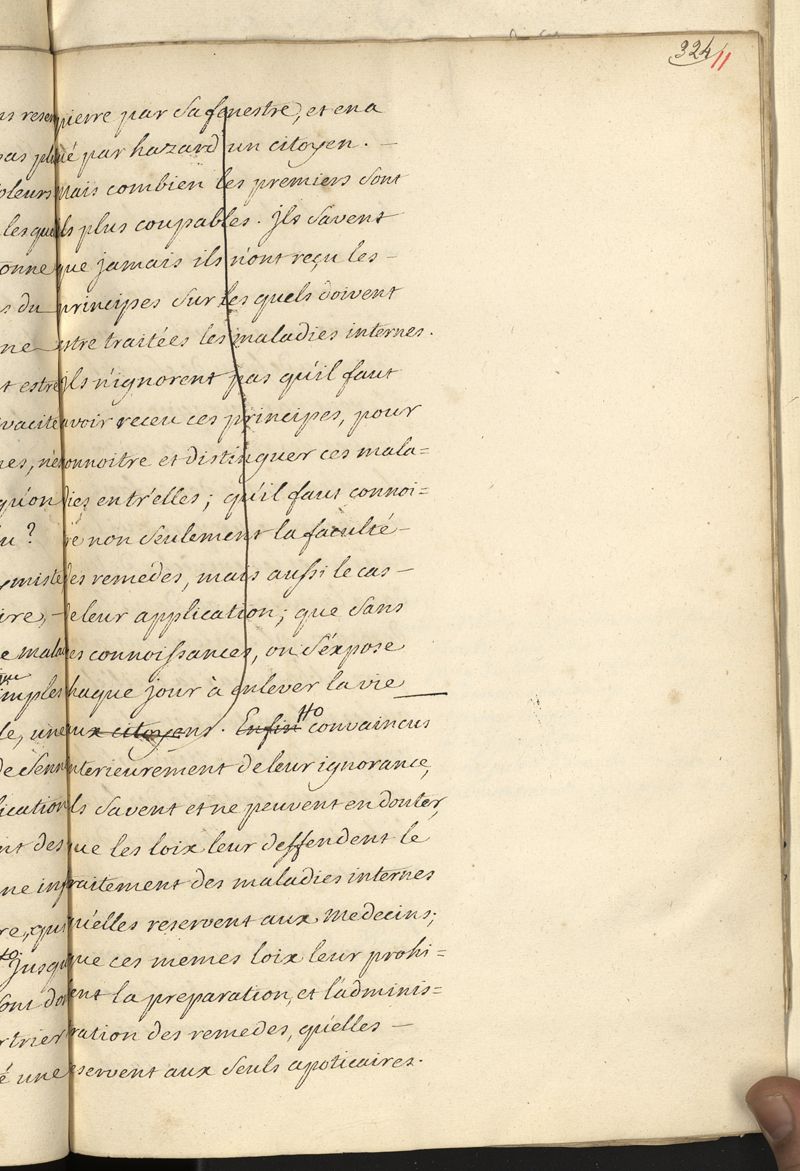 324
11
pierre par sa fenestre, et en a
tué par hazard un citoyen. —
mais combien les premiers sont
ils plus coupables. Ils savent
que jamais ils n'ont reçu les —
principes sur les quels doivent
estre traitées les maladies internes.
ils n'ignorent pas qu'il faut
avoir receu ces principes, pour
connoitre et distinguer ces mala=
dies entr'elles; qu'il faut connoi=
re non seulement la faculté —
des remédes, mais aussi le cas —
de leur application; que sans
ces connoissances, on s'éxpose
chaque jour à enlever la vie
aux citoyens. Enfin Ho convaincus
interieurement de leur ignorance,
ils savent et ne peuvent en douter,
que les loix leur deffendent le
traitement des maladies internes
qu'elles reservent aux medecins;
que ces memes loix leur prohi=
bent la preparation, et l'adminis=
tration des remedes, qu'elles —
reservent aux seuls apoticaires.